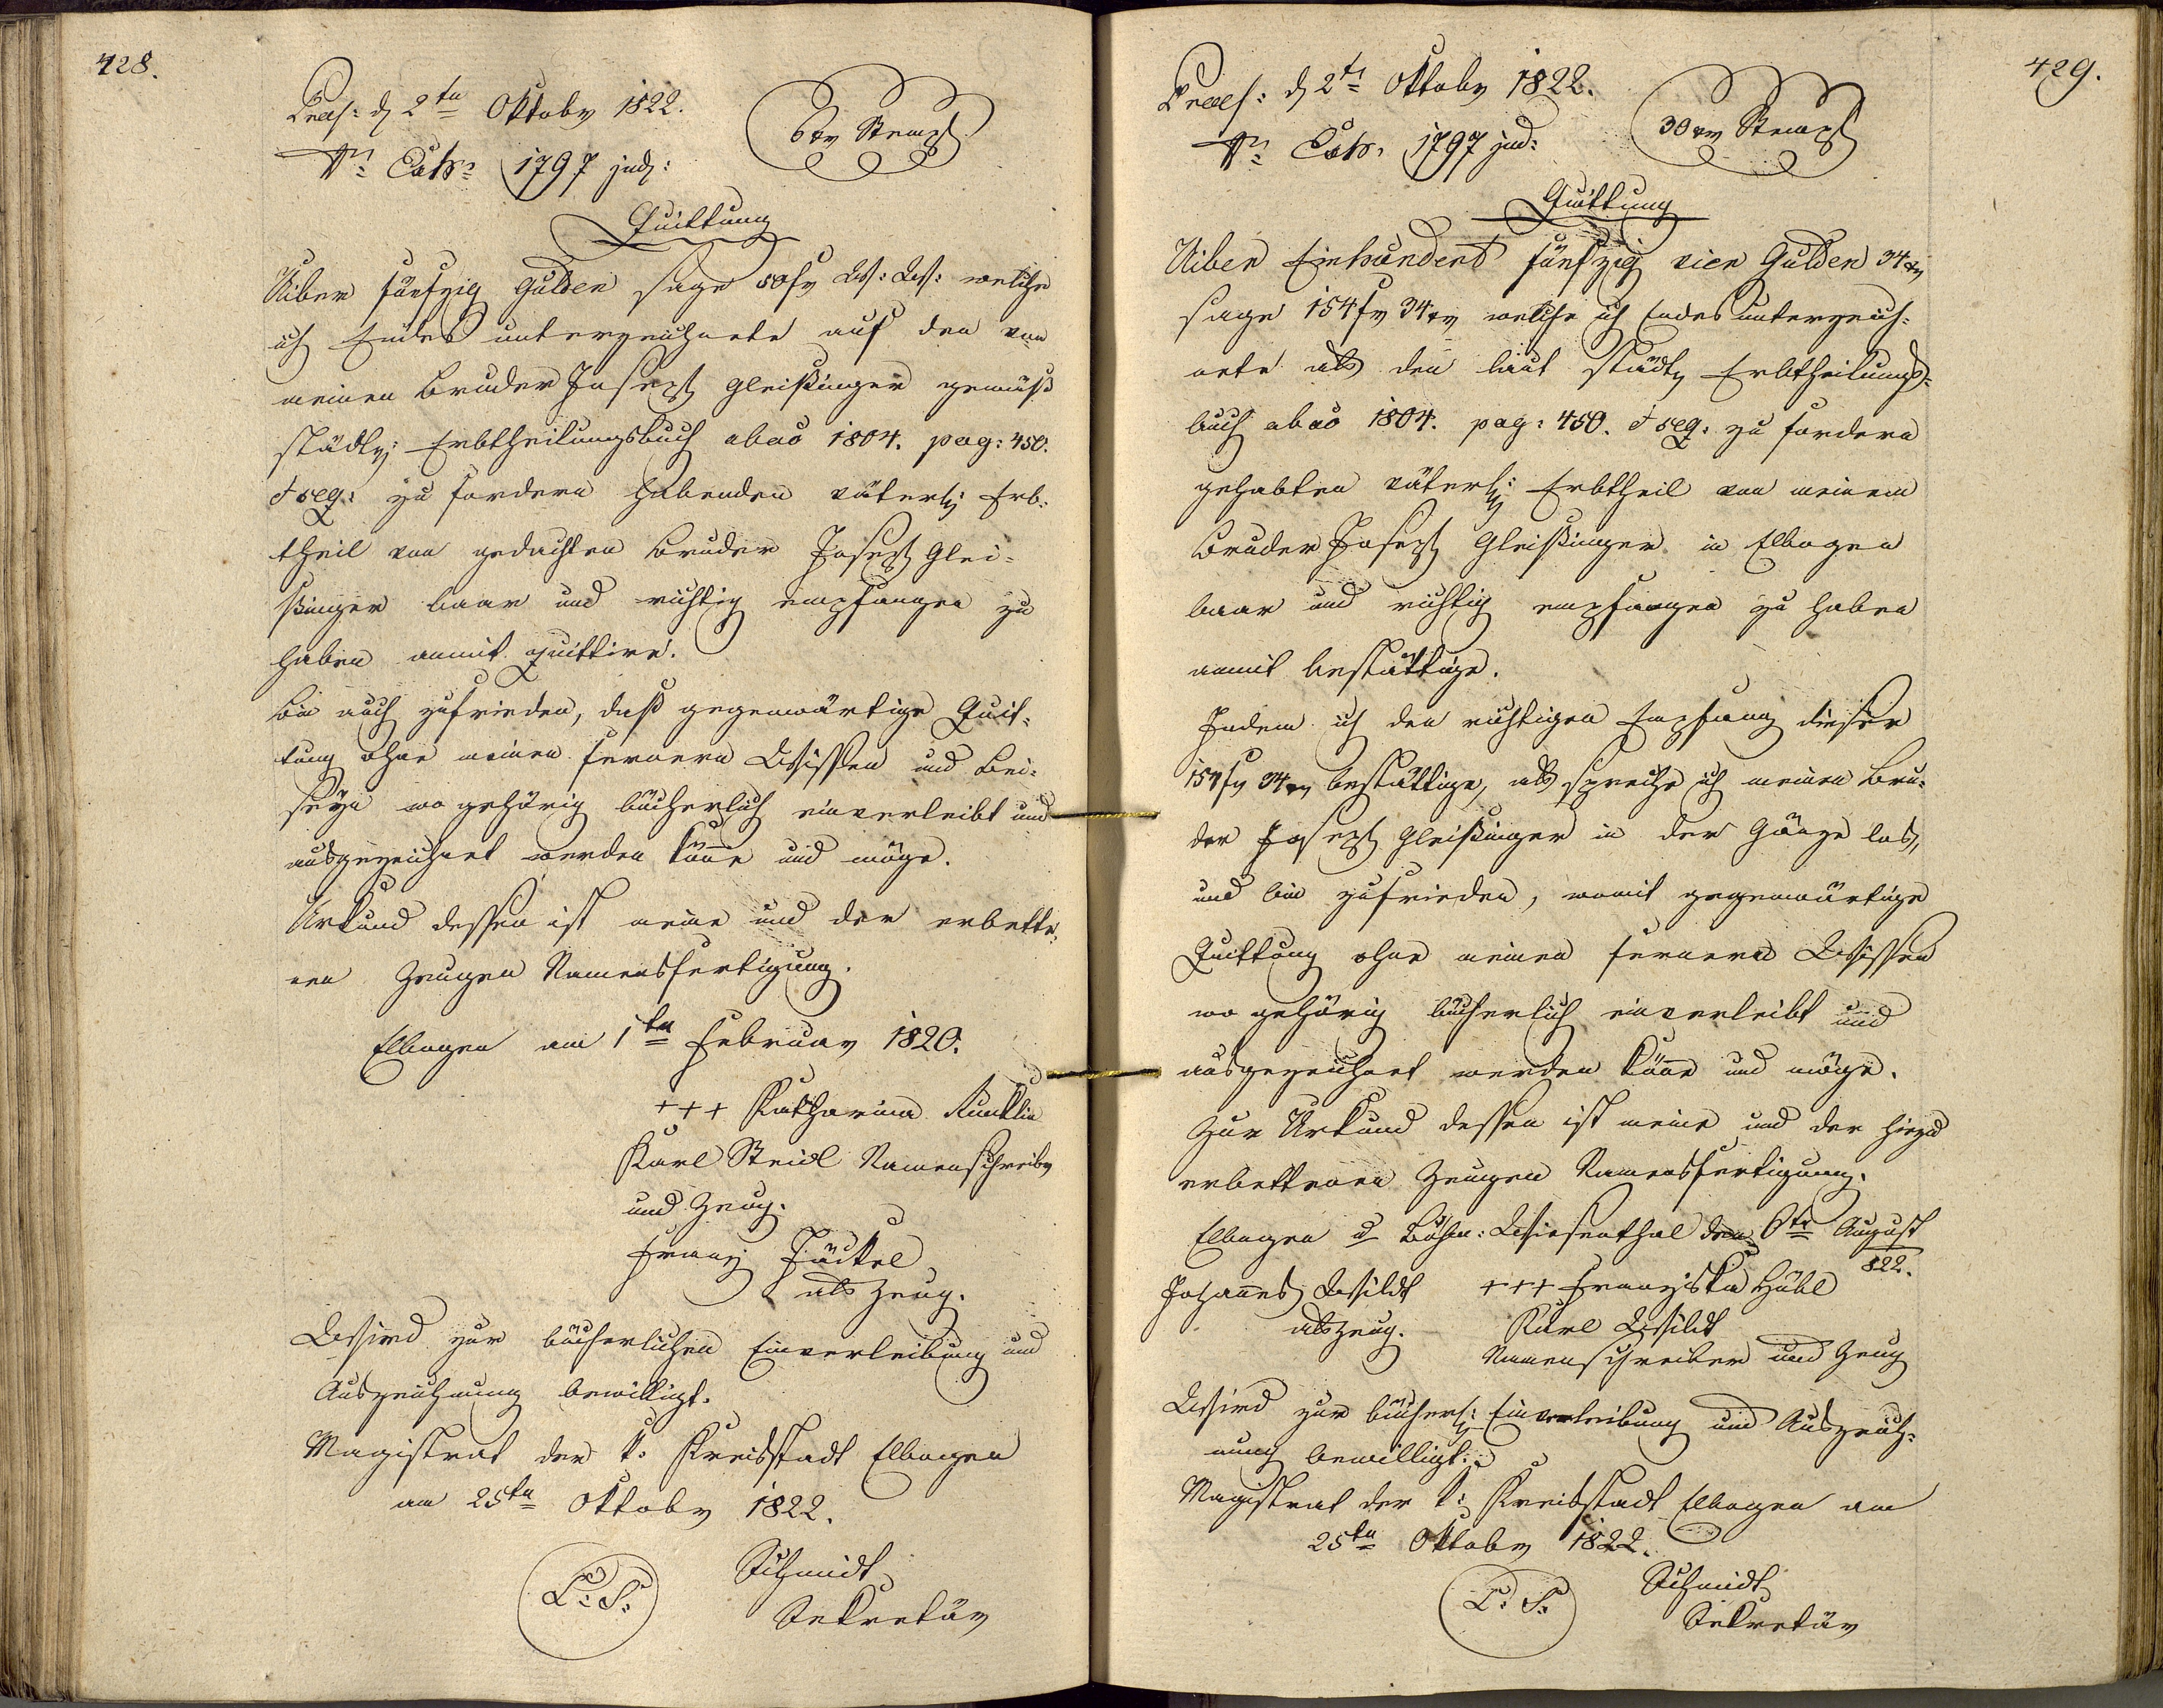 428.
Praes: d 2ten Oktobr 1822.
6 kr Stempl
Nr: Exh: 1797 jud:
Quittung
Uiber fünfzig Gulden sage 50 fr W: W: welche
ich Endes unterzeichnete auf den von
meinen Bruder Joseph Gleißinger gemäß
städtl: Erbtheilungsbuch abao 1804. pag: 450.
et seq: zu fordern habenden väterl: Erb-
theil von gedachten Bruder Joseph Glei-
ßinger baar und richtig empfangen zu
haben anmit quittire.
Bin auch zufrieden, daß gegenwärtige Quit-
tung ohne meinen fernern Wissen und Bei-
seÿn wo gehörig bücherlich einverleibt und
ausgezeichnet werden köne und möge.
Urkund dessen ist meine und der erbette-
nen Zeugen Namensfertigung.
Elbogen am 1ten Februar 1820.
+++ Katharina
Karl Steidl Namenschreibr
und Zeug.
Franz Jäckel
als Zeug.
Wird zur bücherlichen Einverleibung und
Auszeichnung bewilligt.
Magistrat der k: Kreisstadt Elbogen
am 25ten Oktobr 1822.
L: S:
Schmidt
Sekretär
429.
Praes: d 2te Oktobr 1822.
30 kr Stempl
Nr: Exh: 1797 jud:
Quittung
Uiber Einhundert fünfzig vier Gulden 34 kr
sage 154 fr 34 kr welche ich Endes unterzeich-
nete als den laut städtl Erbtheilungs-
buch abao 1804. pag: 450. et seq: zu fordern
gehabten väterl: Erbtheil von meinem
Bruder Joseph Gleißinger in Elbogen
baar und richtig empfangen zu haben
anmit bestättige.
Indem ich den richtigen Empfang dieser
154 fr 34 kr bestättige, als spreche ich meinen Bru-
der Joseph Gleißinger in der Gänze los,
und bin zufrieden, womit gegenwärtige
Quittung ohne meinen fernern Wissen
wo gehörig bücherlich einverleibt und
ausgezeichnet werden köne und möge.
Zur Urkund dessen ist meine und der hiezu
erbettenen Zeugen Namensfertigung.
Elbogen d Böhm: Wiesenthal den 6te August
822.
Johannes Wildt +++ Franziska Hübl
als Zeug. Karl Wildt
Namenschreiber und Zeug
Wird zur bücherl: Einverleibung und Auszeich-
nung bewilligt.
Magistrat der k: Kreisstadt Elbogen am
25ten Oktobr 1822.
L: S:
Schmidt
Sekretär